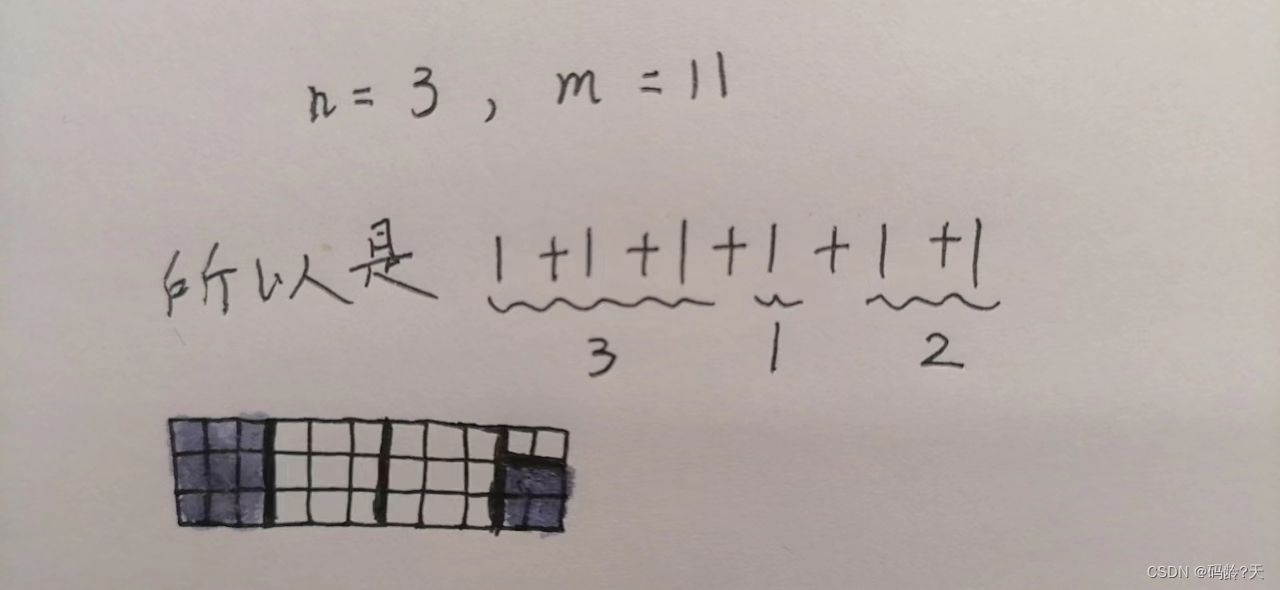 n = 3 , m = 11
所以是 1 + 1 + 1 + 1 + 1 + 1
3 1 2
CSDN @码龄?天